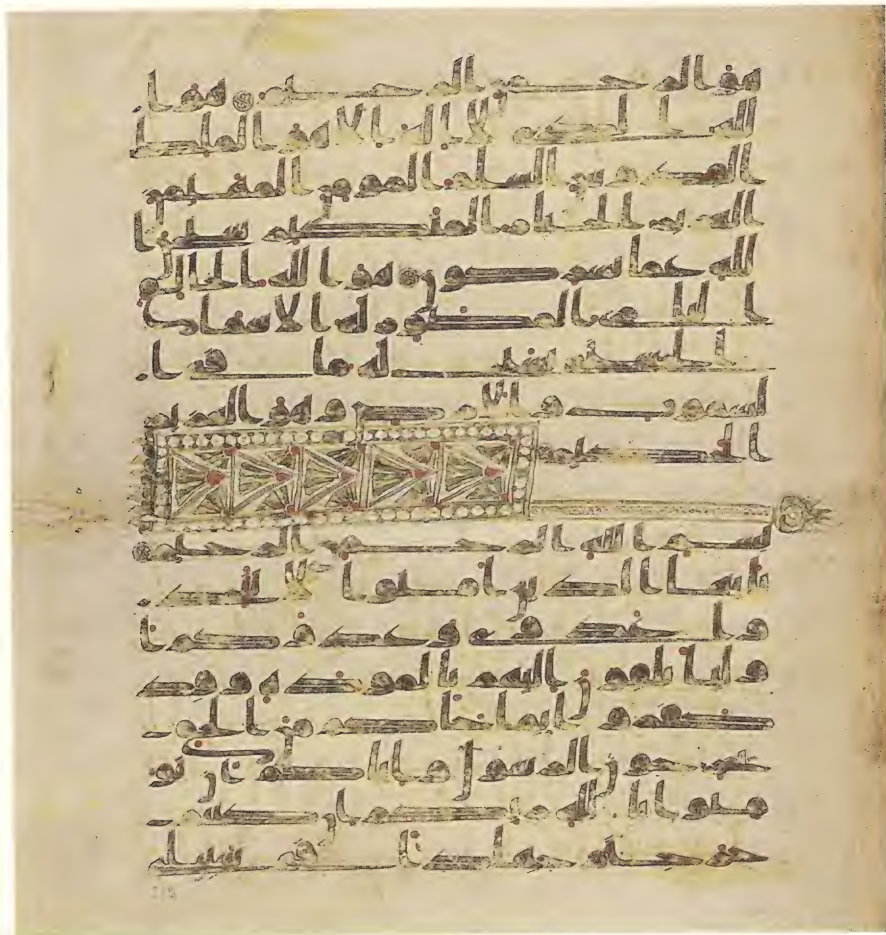 هو الرحمن الرحيم هو ا
لله الذي لا اله الا هو الملك
القدوس السلم المومن المهيمن
العزيز الجبار المتكبر سبحن ا
لله عما يشركون هو الله الخلق
البارى المصور له الاسما
الحسنى يسبح له ما في ا
لسموت والارض وهو العزيز
الحكيم
بسم الله الرحمن الرحيم
يايها الذين امنوا لا تتخذ
وا عدوي وعدوكم ا
وليا تلقون اليهم بالمودة وقد
كفروا بما جاكم من الحق
يخرجون الرسول واياكم ان تو
منوا بالله ربكم ان كنتم
خرجتم جهدا في سبيلي